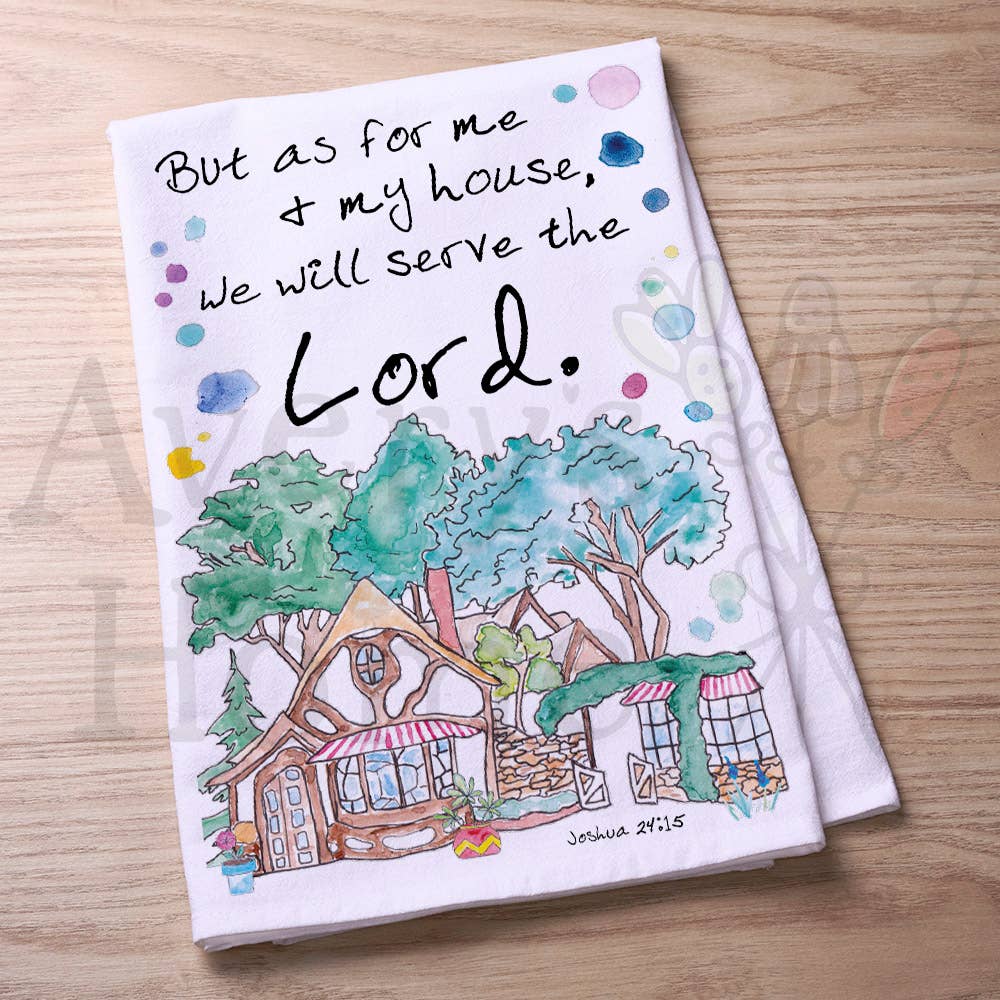 But as for me
+ my house,
we will serve the
Lord.
Joshua 24:15
Avery's
Home